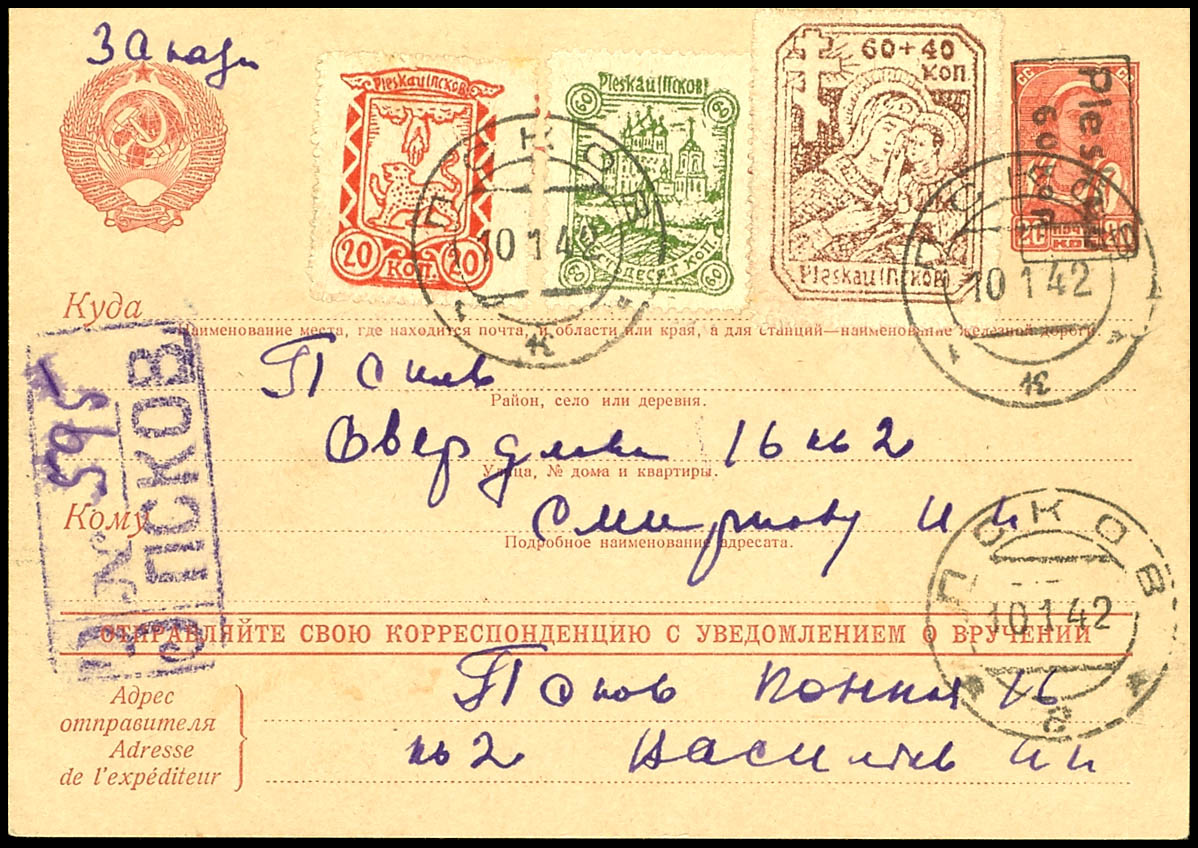 Pleskau ПСКОВ
20 КОП. 20
Pleskau ПСКОВ
60 60
ШЕСТЬДЕСЯТ КОП. 60
60+40
КОП.
Pleskau ПСКОВ
Pleskau
60 коп
ПСКОВ
10 1 42
ПСКОВ
10 1 42
Куда
Наименование места, где находится почта, и области или края, а для станций—наименование железной дороги.
Псков
Район, село или деревня.
Свердлова 16 кв 2
Улица, № дома и квартиры.
Кому
Смирнову И И
Подробное наименование адресата.
595
ПСКОВ
№
ПСКОВ
10 1 42
ОТПРАВЛЯЙТЕ СВОЮ КОРРЕСПОНДЕНЦИЮ С УВЕДОМЛЕНИЕМ О ВРУЧЕНИИ
Адрес
отправителя
Adresse
de l'expéditeur
Псков Конная 16
кв 2 Васильев И И